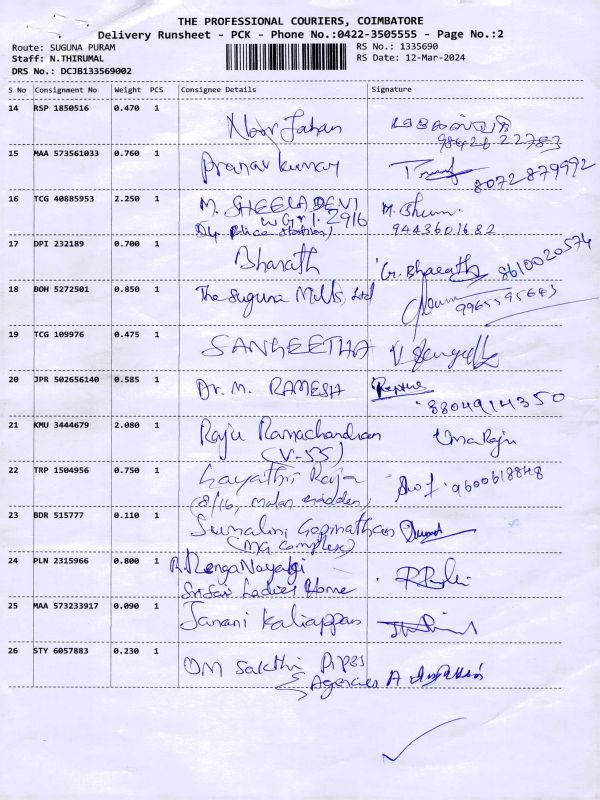 THE PROFESSIONAL COURIERS, COIMBATORE
Delivery Runsheet - PCK - Phone No.:0422-3505555 - Page No.:2
Route: SUGUNA PURAM
RS No.: 1335690
Staff: N.THIRUMAL
RS Date: 12-Mar-2024
DRS No.: DCJB133569002
S No Consignment No Weight PCS Consignee Details Signature
14 RSP 1850516 0.470 1 Noor Jahan
98426 22783
15 MAA 573561033 0.760 1 Pranav kumar
8072879992
16 TCG 40885953 2.250 1 M. SHEELA DEVI M. Bhum
W Gr 1. 2916
9443601682
17 DPI 232189 0.700 1 Bharath G. Bharath 8610020574
18 BOH 5272501 0.850 1 The Suguna Mills, Ltd
9965595643
19 TCG 109976 0.475 1 SANGEETHA
20 JPR 502656140 0.585 1 Dr. M. RAMESH
8804914350
21 KMU 3444679 2.080 1 Raju Ramachandran Uma Raju
(V-535)
22 TRP 1504956 0.750 1 Gayathri Raja 9600618848
(8/16,
23 BDR 515777 0.110 1 Sumalini Gopinathan
(MG Complex)
24 PLN 2315966 0.800 1 R. RengaNayagi
Sri Sai Ladies Home
25 MAA 573233917 0.090 1 Janani Kaliappan
26 STY 6057883 0.230 1 OM Sakthi Pipes
& Agencies A